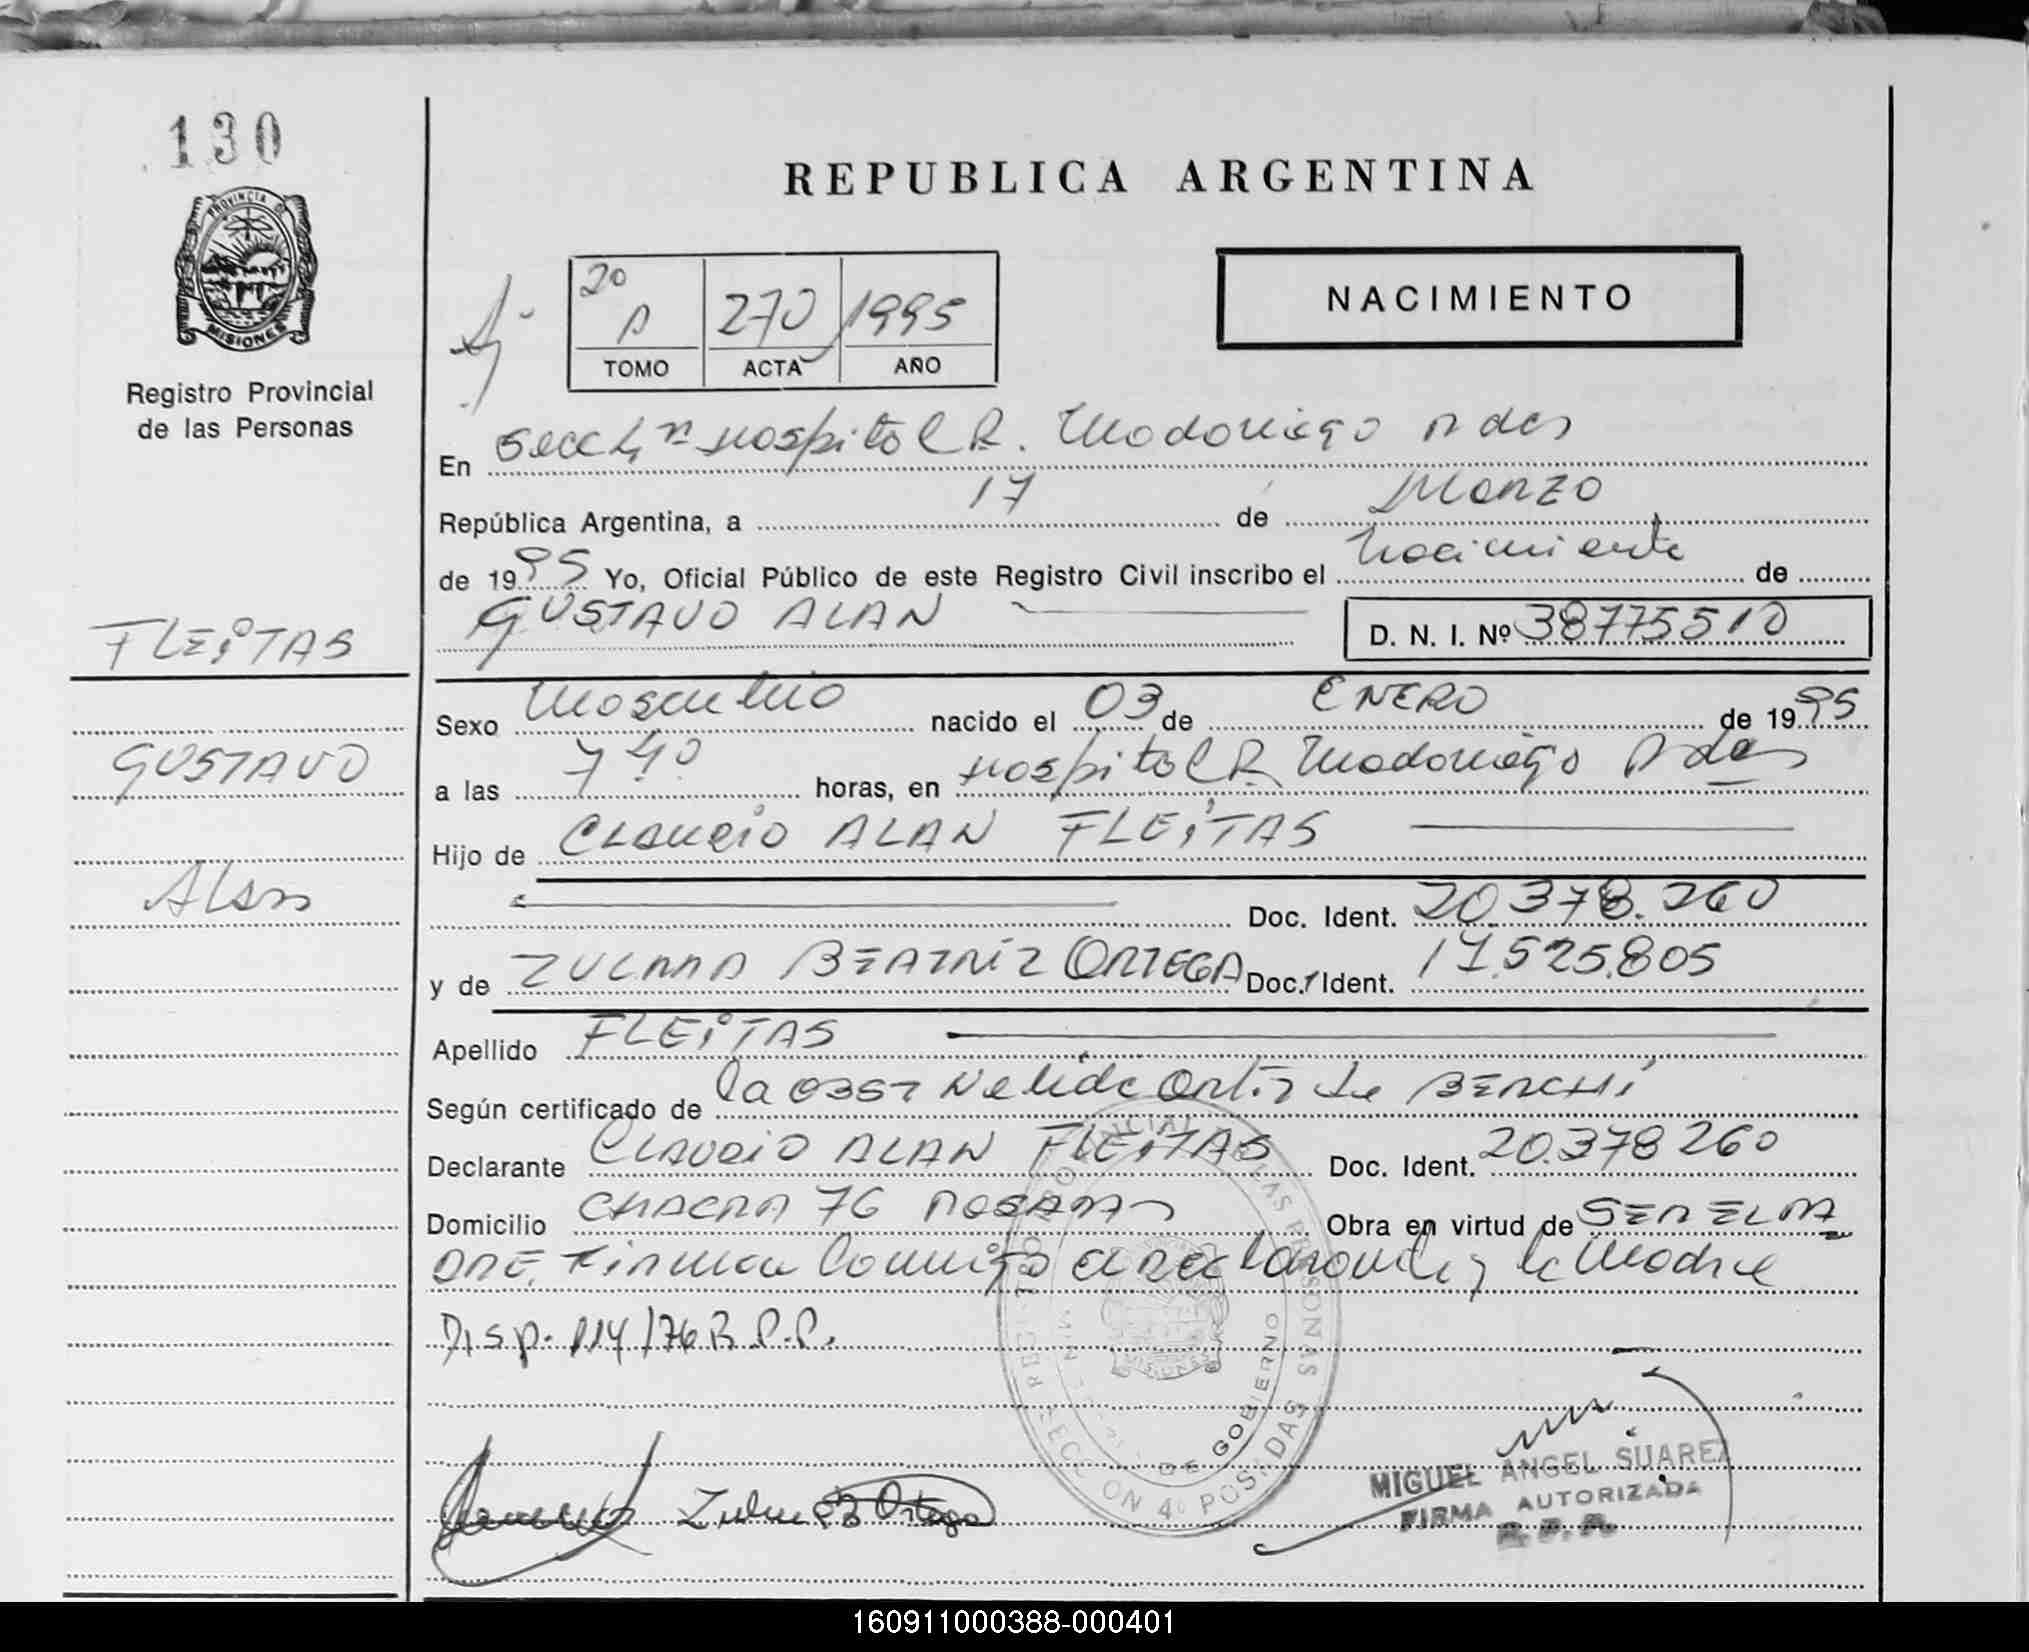 130
PROVINCIA DE
MISIONES
Registro Provincial
de las Personas
REPUBLICA ARGENTINA
2º A 270 1995
TOMO ACTA AÑO
NACIMIENTO
En Secc 4ª Hospital R. Madariaga Pdas
República Argentina, a 17 de Marzo
de 1995 Yo, Oficial Público de este Registro Civil inscribo el Nacimiento de
FLEITAS
GUSTAVO ALAN D. N. I. Nº 38775510
Sexo Masculino nacido el 03 de ENERO de 1995
GUSTAVO
a las 7 40 horas, en Hospital R Madariaga Pdas
Hijo de CLAUDIO ALAN FLEITAS
Alan
Doc. Ident. 20.378.260
y de ZULMA BEATRIZ ORTEGA Doc. Ident. 17.525.805
Apellido FLEITAS
Según certificado de la OBST Nelida Ortiz de BERCHI
Declarante CLAUDIO ALAN FLEITAS Doc. Ident. 20.378 260
Domicilio CHACRA 76 POSADAS Obra en virtud de SER EL PA
DRE. Firman conmigo el declarante y la Madre
Disp. 114/76 R.P.P.
REGISTRO PROVINCIAL DE LAS PERSONAS
SECCION 4º POSADAS
DE GOBIERNO
MISIONES
Zulma B Ortega
MIGUEL ANGEL SUAREZ
FIRMA AUTORIZADA
R. P. P.
160911000388-000401